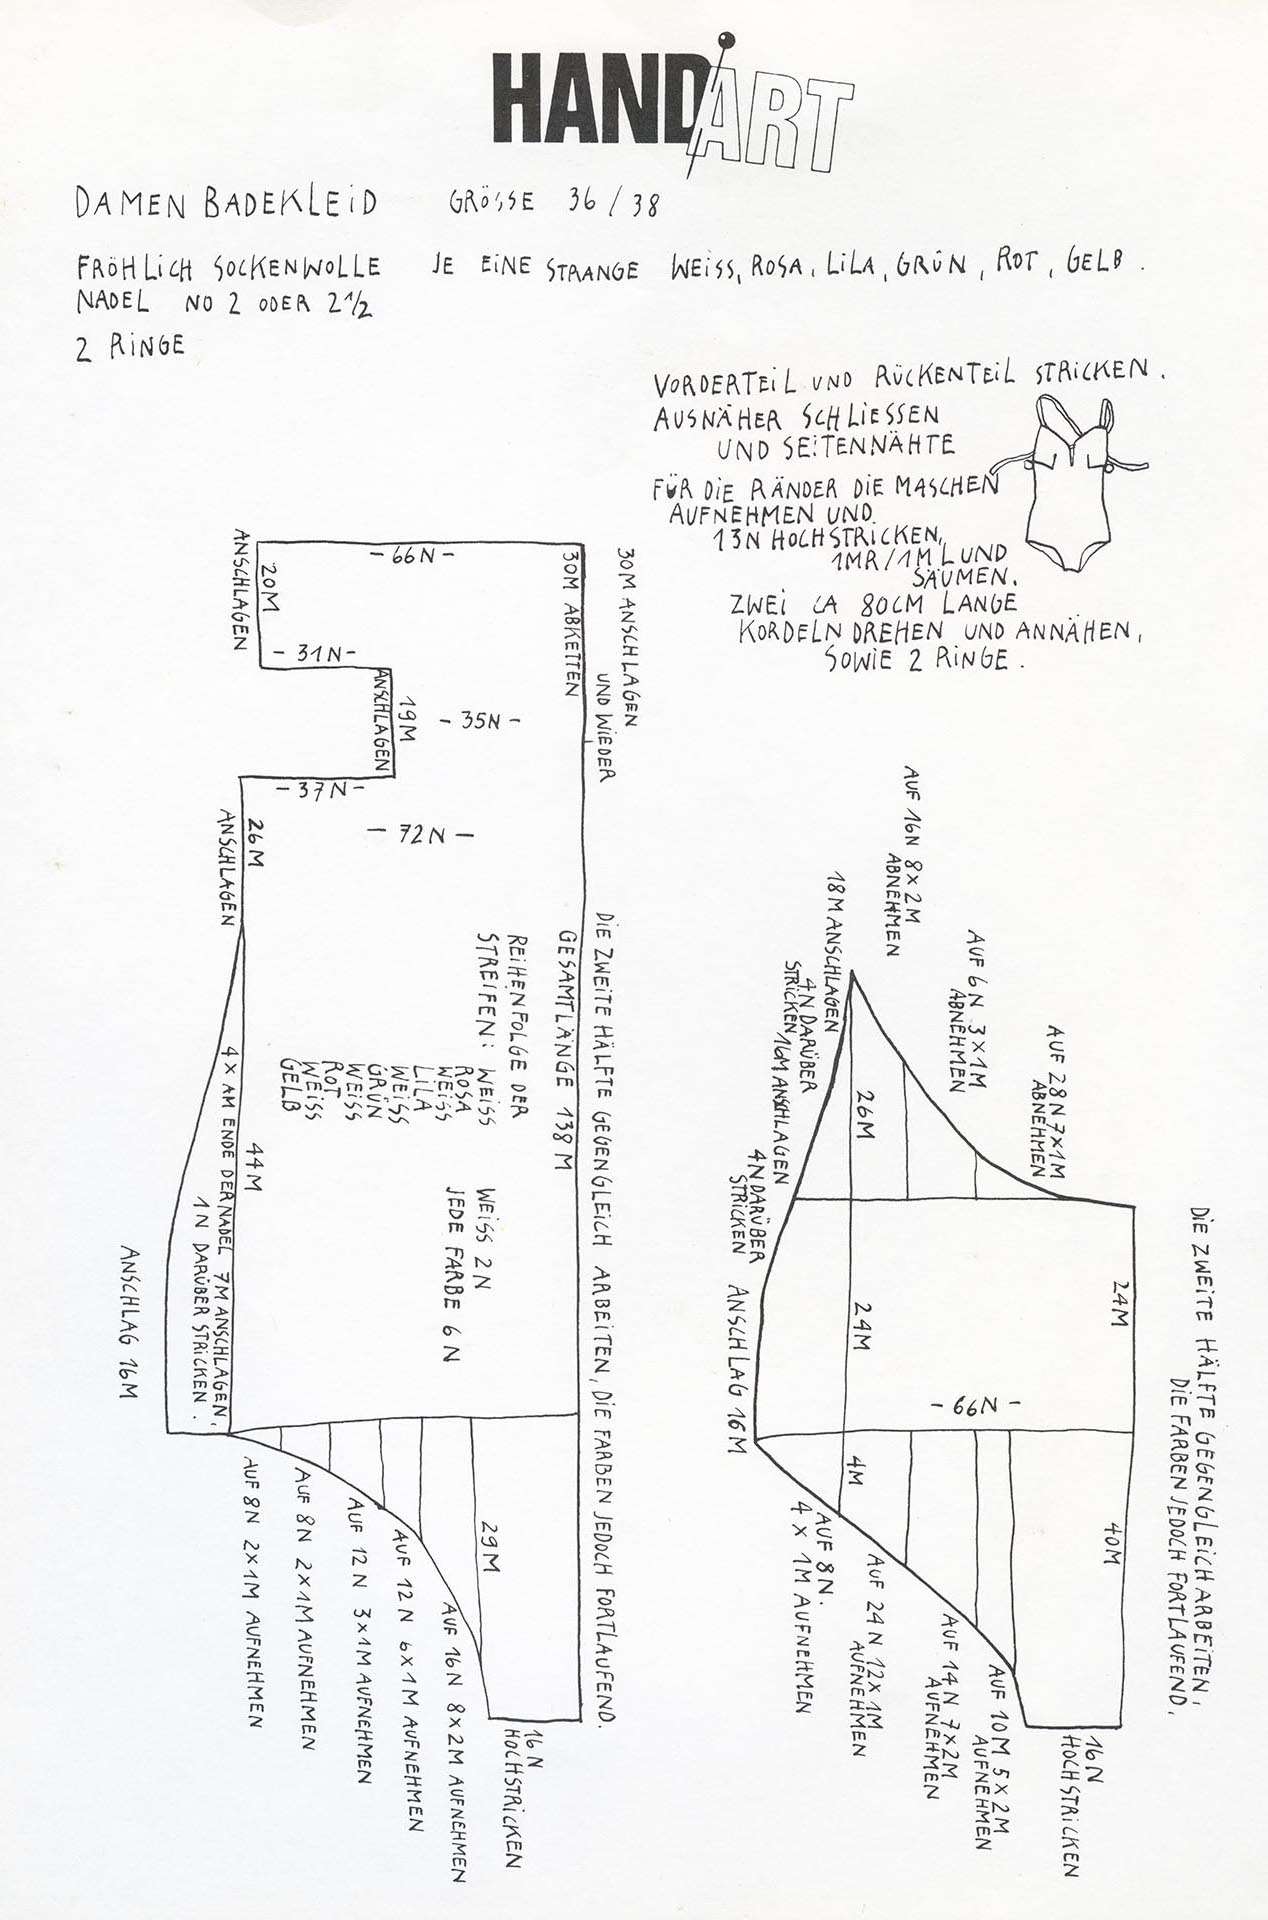 HANDART
DAMEN BADEKLEID GRÖSSE 36/38
FRÖHLICH SOCKENWOLLE JE EINE STRANGE WEISS, ROSA, LILA, GRÜN, ROT, GELB.
NADEL NO 2 ODER 2 1/2
2 RINGE
VORDERTEIL UND RÜCKENTEIL STRICKEN.
AUSNÄHER SCHLIESSEN
UND SEITENNÄHTE
FÜR DIE RÄNDER DIE MASCHEN
AUFNEHMEN UND.
13N HOCHSTRICKEN,
1MR/1ML UND
SÄUMEN.
ZWEI CA 80CM LANGE
KORDELN DREHEN UND ANNÄHEN,
SOWIE 2 RINGE.
30M ANSCHLAGEN
UND WIEDER
30M ABKETTEN
-66N-
20M
ANSCHLAGEN
-31N-
19M
ANSCHLAGEN
-35N-
-37N-
-72N-
26M
ANSCHLAGEN
DIE ZWEITE HÄLFTE GEGENGLEICH ARBEITEN, DIE FARBEN JEDOCH FORTLAUFEND.
GESAMTLÄNGE 138M
REIHENFOLGE DER
STREIFEN: WEISS WEISS 2N
ROSA JEDE FARBE 6N
WEISS
LILA
WEISS
GRÜN
WEISS
ROT
WEISS
GELB
44M
4X AM ENDE DER NADEL 7M ANSCHLAGEN,
1N DARÜBER STRICKEN.
ANSCHLAG 16M
29M
16N
HOCHSTRICKEN
AUF 16N 8X2M AUFNEHMEN
AUF 12N 6X1M AUFNEHMEN
AUF 12N 3X1M AUFNEHMEN
AUF 8N 2X1M AUFNEHMEN
AUF 8N 2X1M AUFNEHMEN
DIE ZWEITE HÄLFTE GEGENGLEICH ARBEITEN,
DIE FARBEN JEDOCH FORTLAUFEND.
AUF 28N 7X1M
ABNEHMEN
AUF 6N 3X1M
ABNEHMEN
AUF 16N 8X2M
ABNEHMEN
18M ANSCHLAGEN
4N DARÜBER
STRICKEN 16M ANSCHLAGEN
4N DARÜBER
STRICKEN
ANSCHLAG 16M
26M
24M
24M
-66N-
4M
40M
16N
HOCHSTRICKEN
AUF 10M 5X2M
AUFNEHMEN
AUF 14N 7X2M
AUFNEHMEN
AUF 24N 12X1M
AUFNEHMEN
AUF 8N.
4X1M AUFNEHMEN